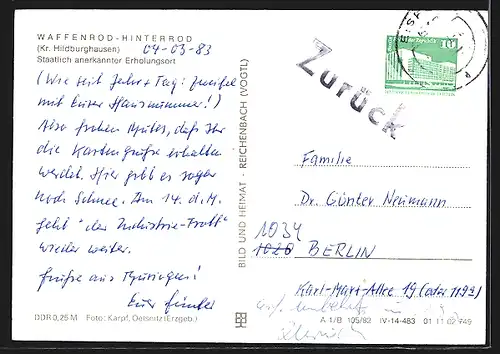 WAFFENROD-HINTERROD
(Kr. Hildburghausen) 04-03-83
Staatlich anerkannter Erholungsort
(Wie seit Jahr + Tag: Zweifel
mit Eurer Hausnummer!)
Also frohen Mutes, daß Ihr
die Kartengrüße erhalten
werdet. Hier gibt es sogar
noch Schnee. Am 14. d. M.
geht "der Industrie-Trott"
wieder weiter.
Grüße aus Thüringen!
Euer Günter
DDR 0,25 M Foto: Karpf, Oelsnitz (Erzgeb.)
BILD UND HEIMAT · REICHENBACH (VOGTL)
10
Zurück
Familie
Dr. Günter Neumann
1034
1020 BERLIN
Karl-Marx-Allee 19 (oder 119a)
unbekannt
Zurück
A 1/B 105/82 IV-14-483 01 11 02 749